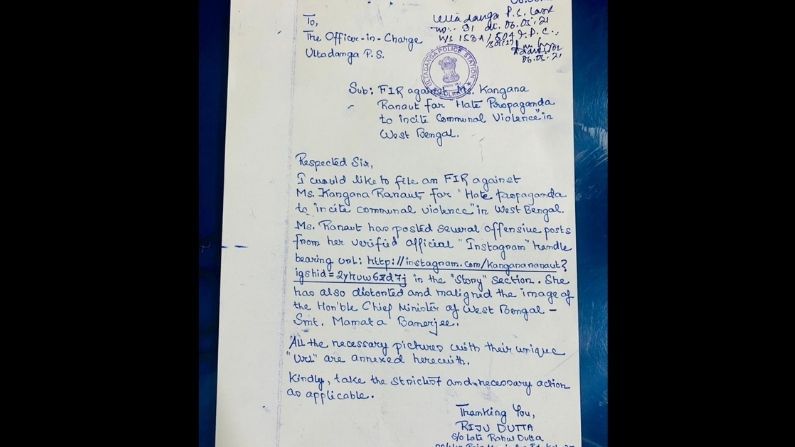 To,
The Officer-in-Charge
Ultadanga P.S.
Ultadanga P.S. Case
no:- 91 dt. 06.05.21
U/S 153A/504 I.P.C.,
06.05.21
Sub: FIR against Ms. Kangana
Ranaut for "Hate Propaganda
to incite Communal Violence" in
West Bengal.
Respected Sir,
I would like to file an FIR against
Ms. Kangana Ranaut for "Hate propaganda
to incite communal violence" in West Bengal.
Ms. Ranaut has posted several offensive posts
from her verified official "Instagram" handle
bearing url: http://instagram.com/kanganaranaut?
igshid= in the "Story" section. She
has also distorted and maligned the image of
the Hon'ble Chief Minister of West Bengal –
Smt. Mamata Banerjee.
All the necessary pictures with their unique
"Url" are annexed herewith.
Kindly, take the strictest and necessary action
as applicable.
Thanking You,
RIJU DUTTA
S/o Late Rahul Dutta